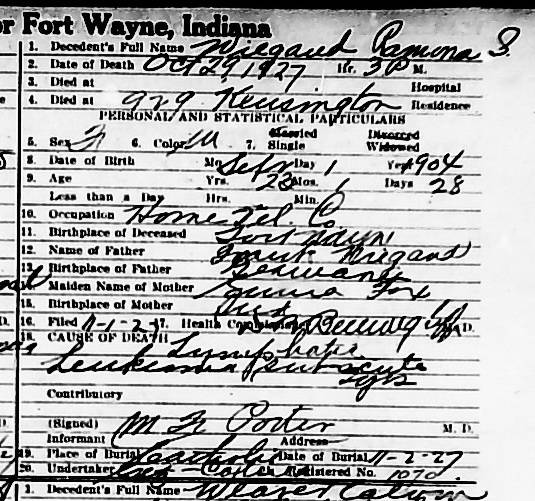 r Fort Wayne, Indiana
1. Decedent's Full Name Wiegand Ramona S.
2. Date of Death Oct 29, 1927 Hr. 3 P M.
3. Died at Hospital
4. Died at 929 Kensington Residence
PERSONAL AND STATISTICAL PARTICULARS
5. Sex F 6. Color W 7. Married Single Divorced Widowed
8. Date of Birth Mo. Sept Day 1 Year 1904
9. Age Yrs. 23 Mos. 1 Days 28
Less than a Day Hrs. Min.
10. Occupation Home Tel Co
11. Birthplace of Deceased Fort Wayne
12. Name of Father Frank Wiegand
13. Birthplace of Father Germany
Maiden Name of Mother Emma Fox
15. Birthplace of Mother Ind
16. Filed 11-1-27 17. Health Commissioner M.D.
18. CAUSE OF DEATH Lymphatic
Leukemia subacute
Contributory
(Signed) M F Porter M. D.
Informant Address
19. Place of Burial Catholic Date of Burial 11-2-27
20. Undertaker Registered No. 1070
1. Decedent's Full Name Weaver Calvin